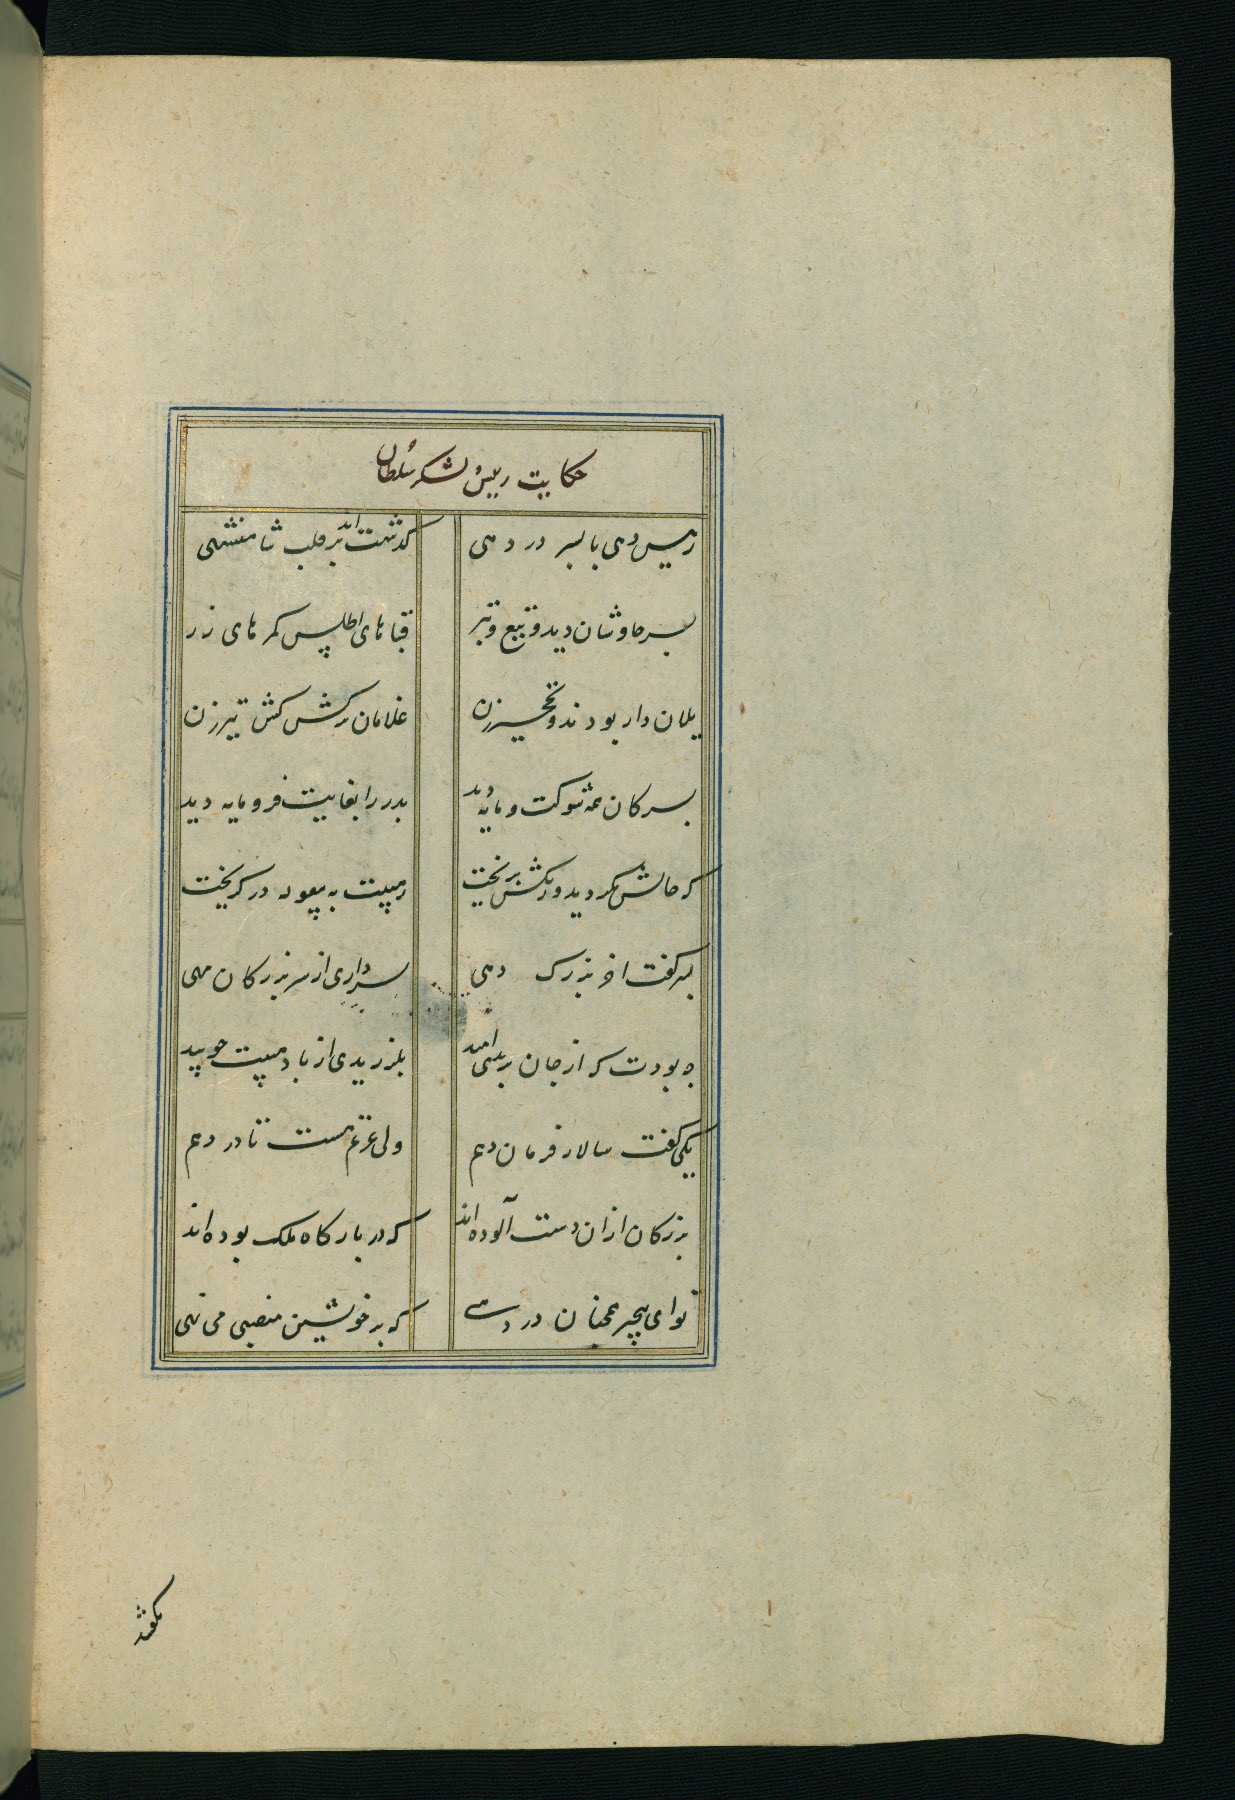 حکایت رییس لشکر سلطان
رییس دهی با پسر در دهی
گذشتند بر قلب شاهنشهی
پسر چاوشان دید و تیغ و تبر
قباهای اطلس کمرهای زر
یلان دار بودند و نخجیر زن
غلامان ترکش کش تیرزن
پسر کان همه شوکت و مایه دید
پدر را بغایت فرومایه دید
که حالش بگردید و رنگش بریخت
ز هیبت به پیغوله در گریخت
پسر گفت اخر بزرگ دهی
سرداری از سر بزرگان مهی
چه بودت که از جان بریدی امید
بلرزیدی از باد هیبت چو بید
یکی گفت سالار فرمان دهم
ولی عزتم هست تا در دهم
بزرگان ازان دهشت آلوده اند
که در بارگاه ملک بوده اند
تو ای بیخبر همچنان در دهی
که بر خویشتن منصبی می نهی
نگفتند